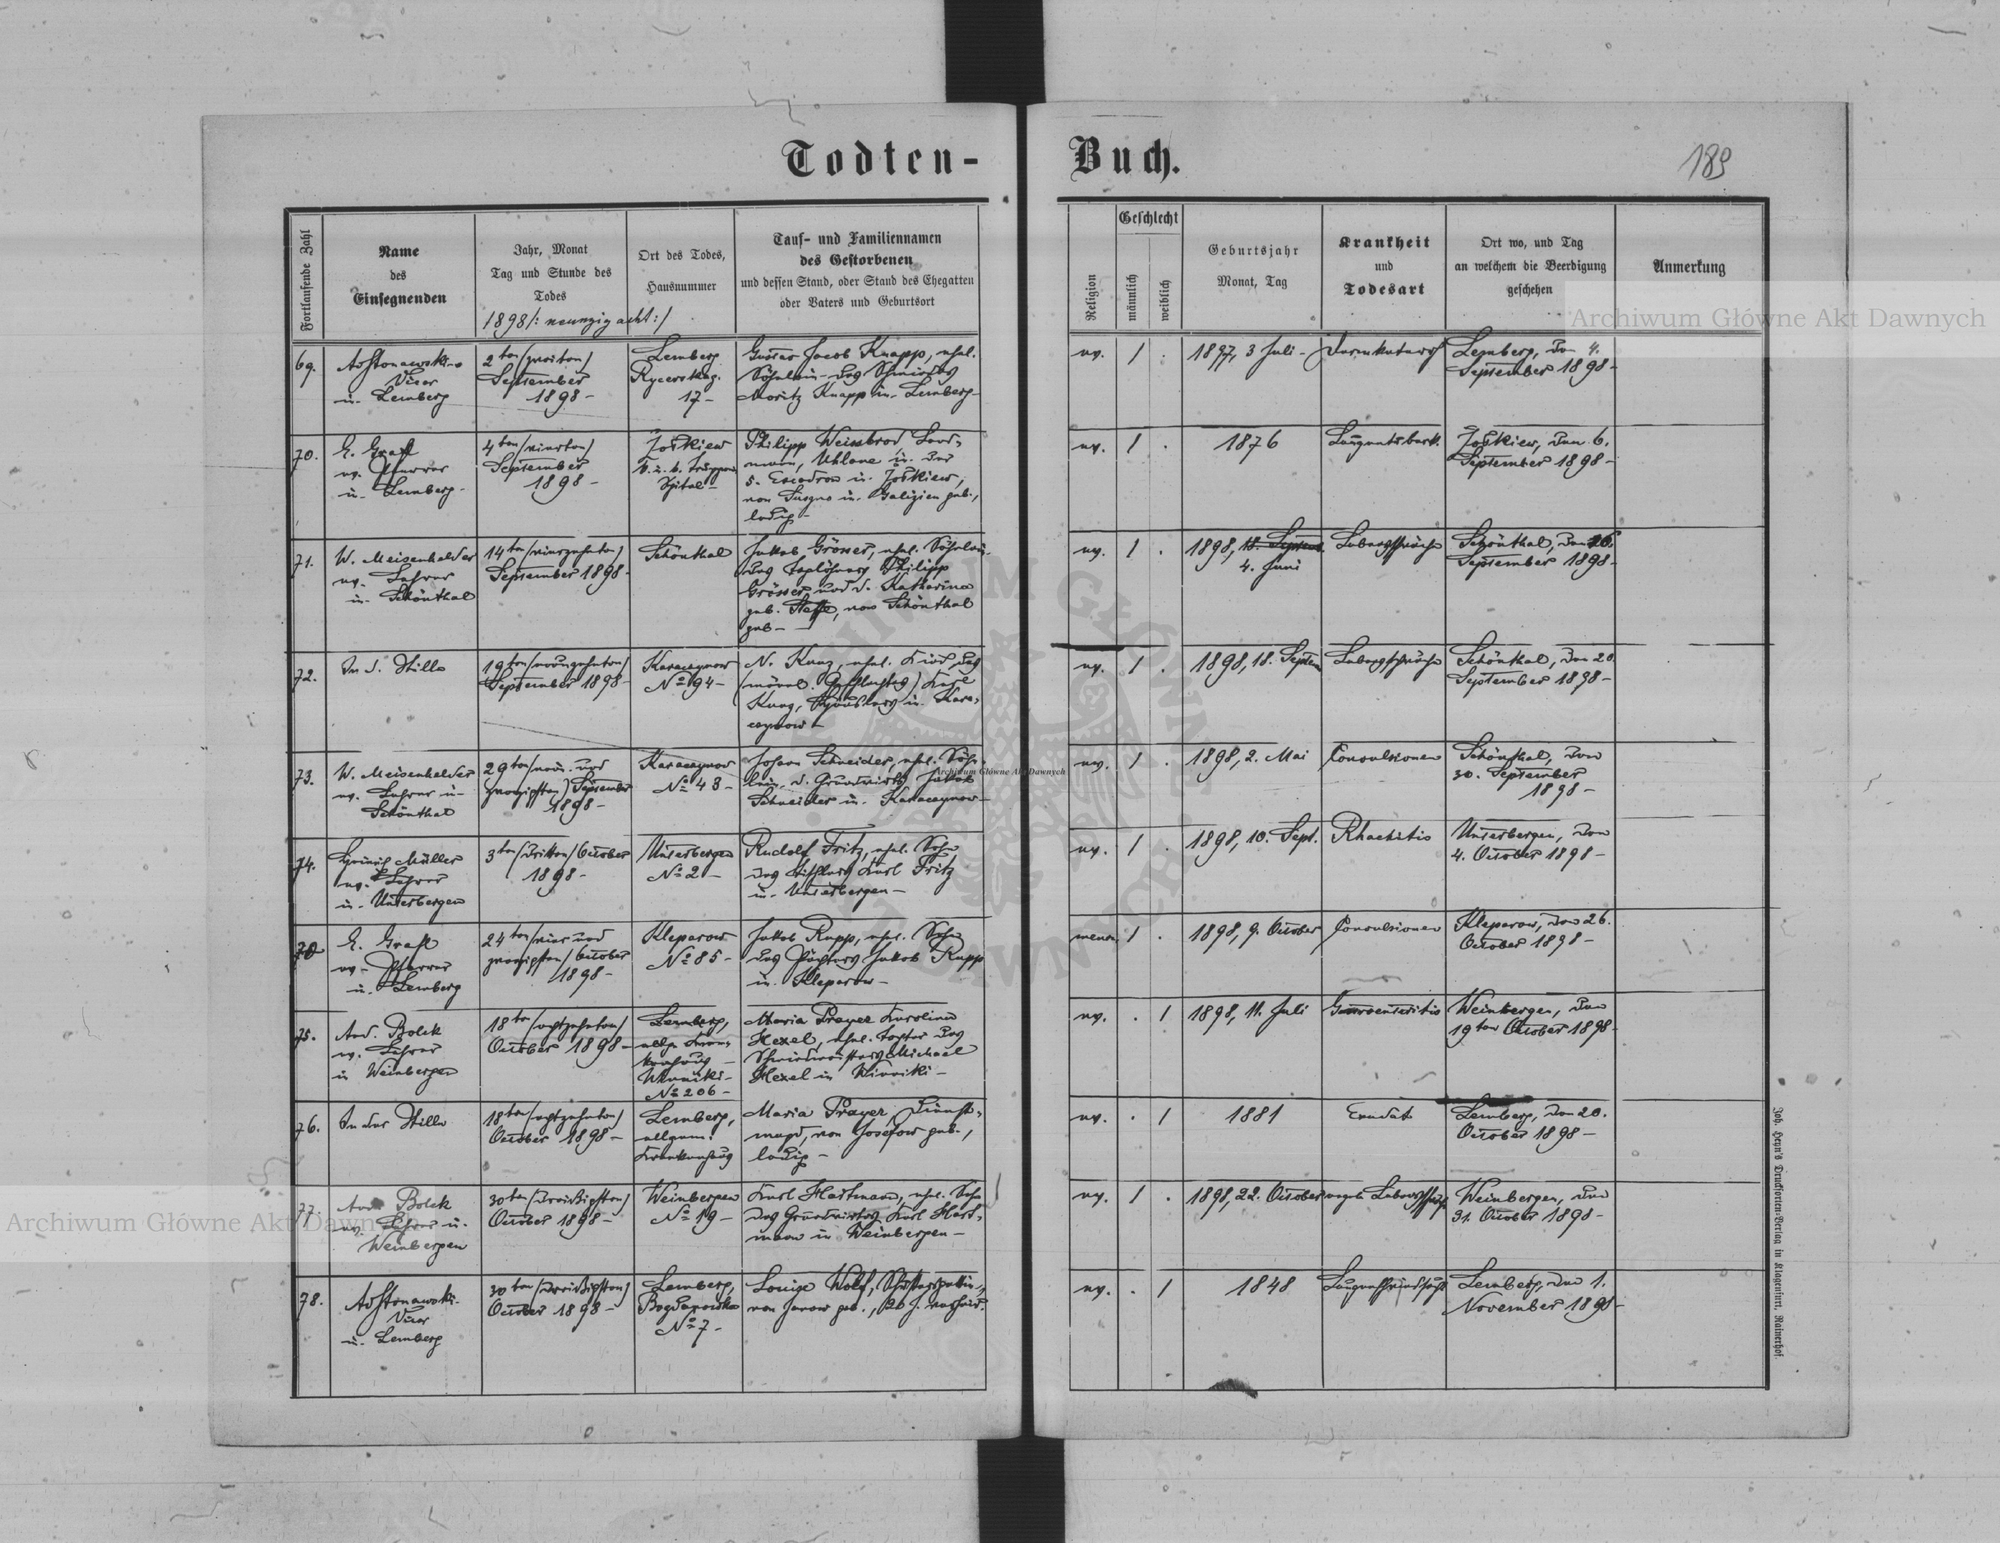 Todten-Buch.
189
Fortlaufende Zahl
Name
des
Einsegnenden
Jahr, Monat
Tag und Stunde des
Todes
1898 /: neunzig acht :/
Ort des Todes,
Hausnummer
Tauf- und Familiennamen
des Gestorbenen
und dessen Stand, oder Stand des Ehegatten
oder Vaters und Geburtsort
Religion
Geschlecht
männlich
weiblich
Geburtsjahr
Monat, Tag
Krankheit
und
Todesart
Ort wo, und Tag
an welchem die Beerdigung
geschehen
Anmerkung
69.
Vicar
in Lemberg
2ten /zweiten/
September
1898 -
Lemberg
17 -
Jacob Knapp, ehel.
Söhnlein des
Moritz Knapp in Lemberg -
ev.
1
.
1897, 3 Juli -
Darmkatarrh
Lemberg, den 4.
September 1898 -
70.
E. Grafl
ev. Pfarrer
in Lemberg -
4ten /vierten/
September
1898 -
Żółkiew
k. u. k. Truppen
Spital -
Philipp Weinbrod
Uhlane in der
5. Escadron in Żółkiew,
in Galizien geb.,
ledig -
ev.
1
.
1876
Żółkiew, den 6.
September 1898 -
71.
W. Meisenhelder
ev. Lehrer
in Schönthal
14ten /vierzehnten/
September 1898 -
Schönthal
Jakob Grösser, ehel. Söhnlein
des Taglöhners Philipp
Grösser und d. Katharina
geb. , von Schönthal
geb -
ev.
1
.
1898, 18. Septem
4. Juni
Lebensschwäche
Schönthal, den 16.
September 1898 -
72.
In d. Stille
19ten /neunzehnten/
September 1898 -
Karaczynow
No 94 -
N. Kunz, ehel. Kind des
(männl. Geschlechtes) Karl
Kunz, in Kara-
czynow -
ev.
1
.
1898, 18. Septem
Lebensschwäche
Schönthal, den 20.
September 1898 -
73.
W. Meisenhelder
ev. Lehrer in
Schönthal
29ten /neun und
zwanzigsten/ September
1898 -
Karaczynow
No 48 -
Johann Schneider, ehel. Söhn-
lein d. Grundwirths Jakob
Schneider in Karaczynow -
ev.
1
.
1898, 2. Mai
Convulsionen
Schönthal, den
30. September
1898 -
74.
Heinrich Müller
ev. Lehrer
in Unterbergen
3ten /dritten/ October
1898 -
Unterbergen
No 2 -
Rudolf Fritz, ehel. Sohn
des Karl Fritz
in Unterbergen -
ev.
1
.
1898, 10. Sept.
Rhachitis
Unterbergen, den
4. October 1898 -
E. Grafl
ev. Pfarrer
in Lemberg
24ten /vier und
zwanzigsten/ October
1898 -
Kleparow
No 85 -
Jakob Rupp, ehel. Sohn
des Pächters Jakob Rupp
in Kleparow -
menn.
1
.
1898, 9. October
Convulsionen
Kleparow, den 26.
October 1898 -
75.
And. Bolek
ev. Lehrer
in Weinbergen
18ten /achtzehnten/
October 1898 -
Lemberg,
allg. Kran-
kenhaus
Winniki -
No 206 -
Maria Prayer Karolina
Hexel, ehel. Tochter des
Michael
Hexel in Winniki -
ev.
.
1
1898, 11. Juli
Weinbergen, den
19ten October 1898 -
76.
In der Stille
18ten /achtzehnten/
October 1898 -
Lemberg,
allgem.
Krankenhaus
Maria Prayer, Dienst-
magd, von Josefow geb.,
ledig -
ev.
.
1
1881
Lemberg, den 20.
October 1898 -
77.
And. Bolek
ev. Lehrer in
Weinbergen
30ten /dreißigsten/
October 1898 -
Weinbergen
No 19 -
Karl Hartmann, ehel. Sohn
des Grundwirthes Karl Hart-
mann in Weinbergen -
ev.
1
.
1898, 22. October
Weinbergen, den
31. October 1898 -
78.
Vicar
in Lemberg
30ten /dreißigsten/
October 1898 -
Lemberg,
No 7 -
Louise Wolf,
von Janow geb.,
ev.
.
1
1848
Lemberg, den 1.
November 1898 -
Joh. Heyn's Drucksorten-Verlag in Klagenfurt, Rainerhof.
Archiwum Główne Akt Dawnych
Archiwum Główne Akt Dawnych
Archiwum Główne Akt Dawnych